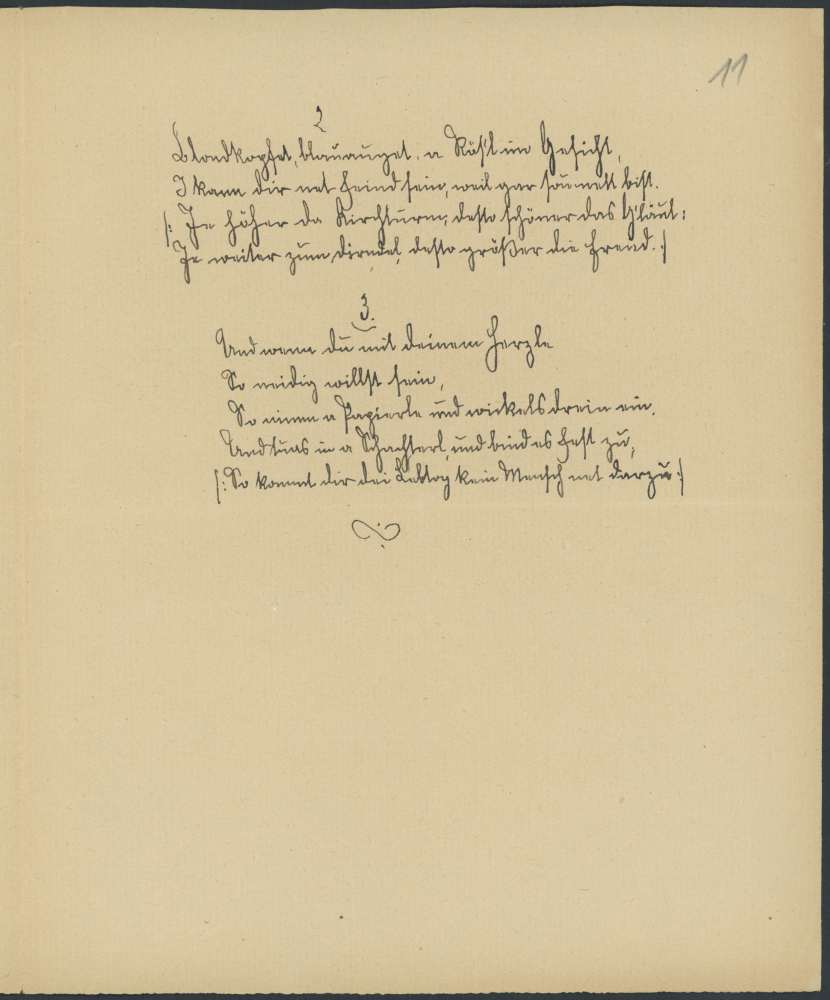 11
2
Blondkopfet, blauauget, a Rös'l im Gesicht,
I kann dir net Feind sein, weil gar so nett bist.
|: Je höher da Kirchturm, desto schöner das G'läut:
Je weiter zum Dirndel, desto größer die Freud. :|
3.
Und wenn du mit deinem Herzle
So neidig willst sein,
So nimm a Papierle und wickels drein ein,
Und tuas in a Schachterl, und bind es fest zu,
|: So kommt dir dei Lebtog kein Mensch net darzu :|